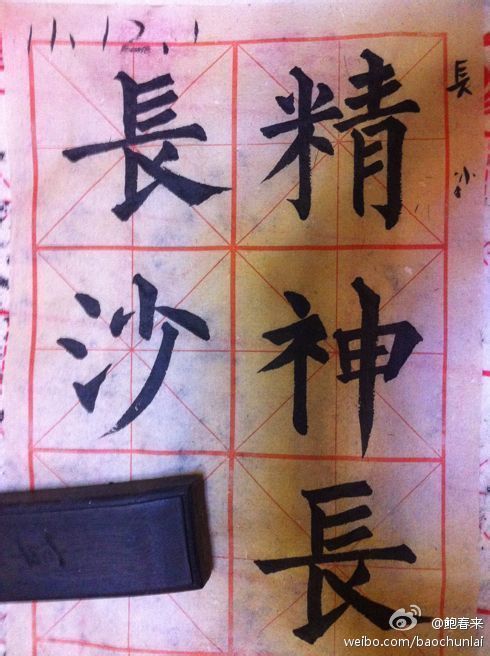 11.12.1
精神長
長沙
長沙
@鲍春来
weibo.com/baochunlai